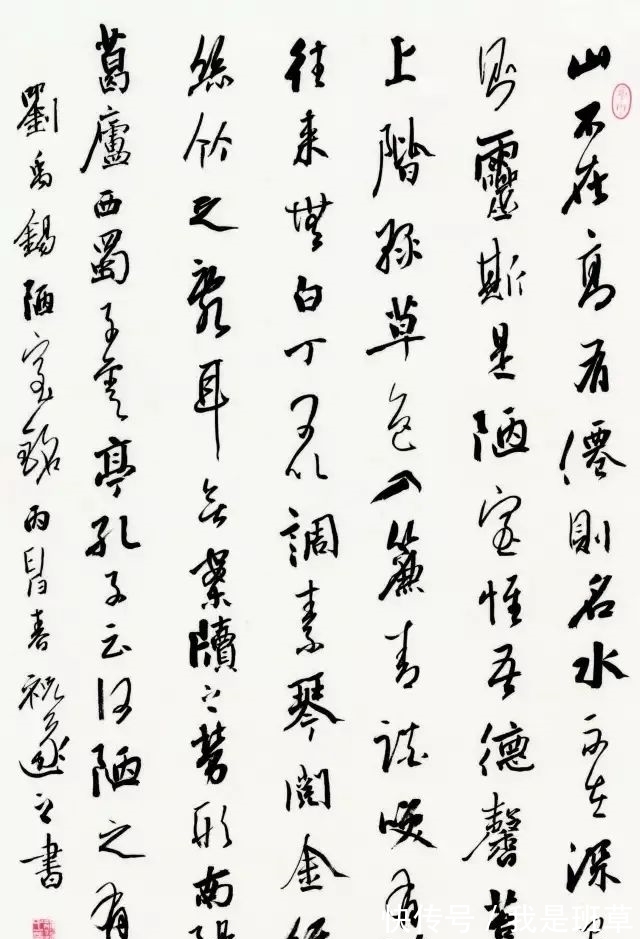 山不在高有僊則名水不在深
則靈斯是陋室惟吾德馨苔
上階綠草色入簾青談咲有
往來無白丁可以調素琴閱金經
絲竹之亂耳無案牘之勞形南陽
葛廬西蜀子雲亭孔子云何陋之有
劉禹錫陋室銘春祝遂之書
快传号/我是班草